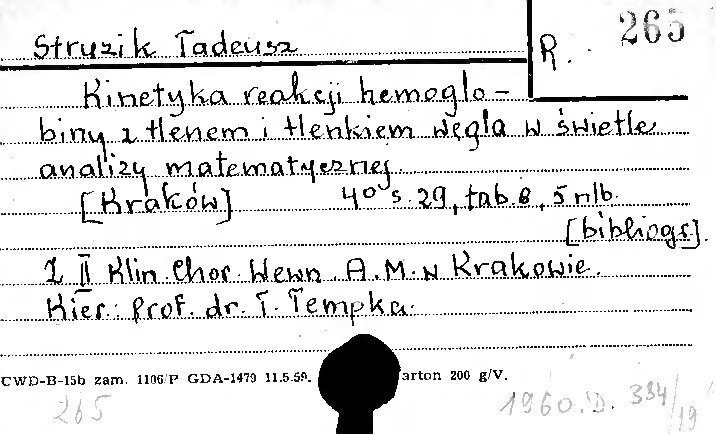 Struzik Tadeusz
R. 265
Kinetyka reakcji hemoglo-
biny z tlenem i tlenkiem węgla w świetle
analizy matematycznej.
[Kraków] 4° s. 29, tab. 8, 5 nlb.
[bibliogr].
Z II Klin. Chor. Wewn. A.M. w Krakowie.
Kier: Prof. dr. T. Tempka.
CWD-B-15b zam. 1106/P GDA-1479 11.5.59. arton 200 g/V.
265 1960.D. 334/19